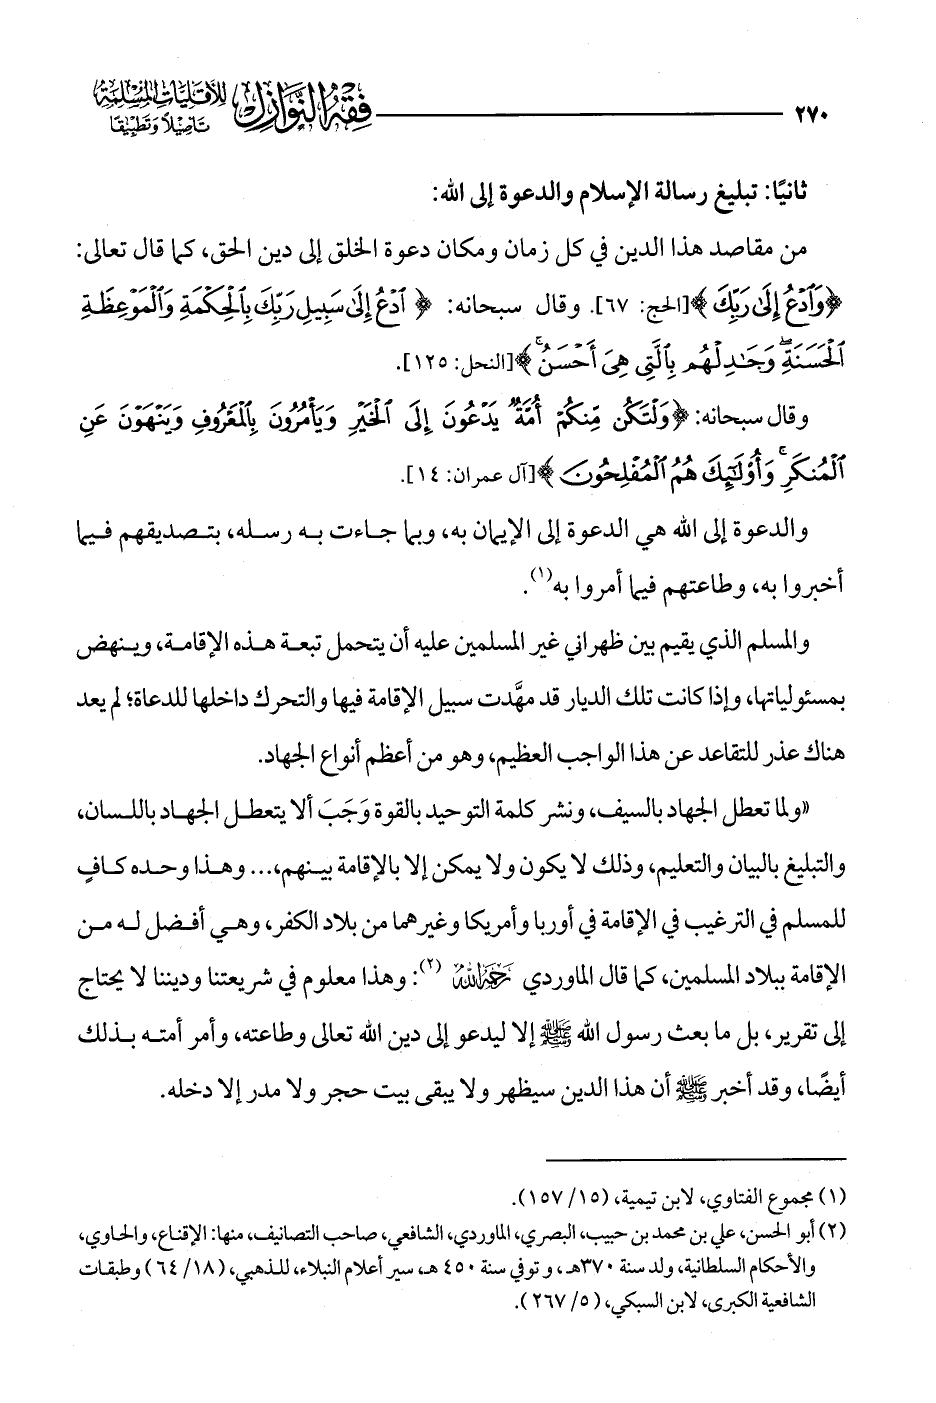 ٢٧٠ فقه النوازل للأقليات المسلمة
تأصيلا وتطبيقا
ثانيًا: تبليغ رسالة الإسلام والدعوة إلى الله:
من مقاصد هذا الدين في كل زمان ومكان دعوة الخلق إلى دين الحق، كما قال تعالى:
﴿وَٱدۡعُ إِلَىٰ رَبِّكَ﴾[الحج: ٦٧]. وقال سبحانه: ﴿ٱدۡعُ إِلَىٰ سَبِيلِ رَبِّكَ بِٱلۡحِكۡمَةِ وَٱلۡمَوۡعِظَةِ
ٱلۡحَسَنَةِۖ وَجَٰدِلۡهُم بِٱلَّتِي هِيَ أَحۡسَنُۚ﴾[النحل: ١٢٥].
وقال سبحانه: ﴿وَلۡتَكُن مِّنكُمۡ أُمَّةٞ يَدۡعُونَ إِلَى ٱلۡخَيۡرِ وَيَأۡمُرُونَ بِٱلۡمَعۡرُوفِ وَيَنۡهَوۡنَ عَنِ
ٱلۡمُنكَرِۚ وَأُوْلَٰٓئِكَ هُمُ ٱلۡمُفۡلِحُونَ﴾[آل عمران: ١٤].
والدعوة إلى الله هي الدعوة إلى الإيمان به، وبما جاءت به رسله، بتصديقهم فيما
أخبروا به، وطاعتهم فيما أمروا به(١).
والمسلم الذي يقيم بين ظهراني غير المسلمين عليه أن يتحمل تبعة هذه الإقامة، وينهض
بمسئولياتها، وإذا كانت تلك الديار قد مهَّدت سبيل الإقامة فيها والتحرك داخلها للدعاة؛ لم يعد
هناك عذر للتقاعد عن هذا الواجب العظيم، وهو من أعظم أنواع الجهاد.
«ولما تعطل الجهاد بالسيف، ونشر كلمة التوحيد بالقوة وَجَبَ ألا يتعطل الجهاد باللسان،
والتبليغ بالبيان والتعليم، وذلك لا يكون ولا يمكن إلا بالإقامة بينهم،... وهذا وحده كافٍ
للمسلم في الترغيب في الإقامة في أوربا وأمريكا وغيرهما من بلاد الكفر، وهي أفضل له من
الإقامة ببلاد المسلمين، كما قال الماوردي رحمه الله (٢): وهذا معلوم في شريعتنا وديننا لا يحتاج
إلى تقرير، بل ما بعث رسول الله ﷺ إلا ليدعو إلى دين الله تعالى وطاعته، وأمر أمته بذلك
أيضًا، وقد أخبر ﷺ أن هذا الدين سيظهر ولا يبقى بيت حجر ولا مدر إلا دخله.
(١) مجموع الفتاوي، لابن تيمية، (١٥/ ١٥٧).
(٢) أبو الحسن، علي بن محمد بن حبيب، البصري، الماوردي، الشافعي، صاحب التصانيف، منها: الإقناع، والحاوي،
والأحكام السلطانية، ولد سنة ٣٧٠هـ، وتوفي سنة ٤٥٠ هـ، سير أعلام النبلاء، للذهبي، (١٨/ ٦٤) وطبقات
الشافعية الكبرى، لابن السبكي، (٥/ ٢٦٧).